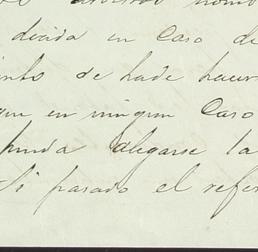 decida en caso de
de hade hacer
que en ningun Caso
pueda alegarse la
Si pasado el refer